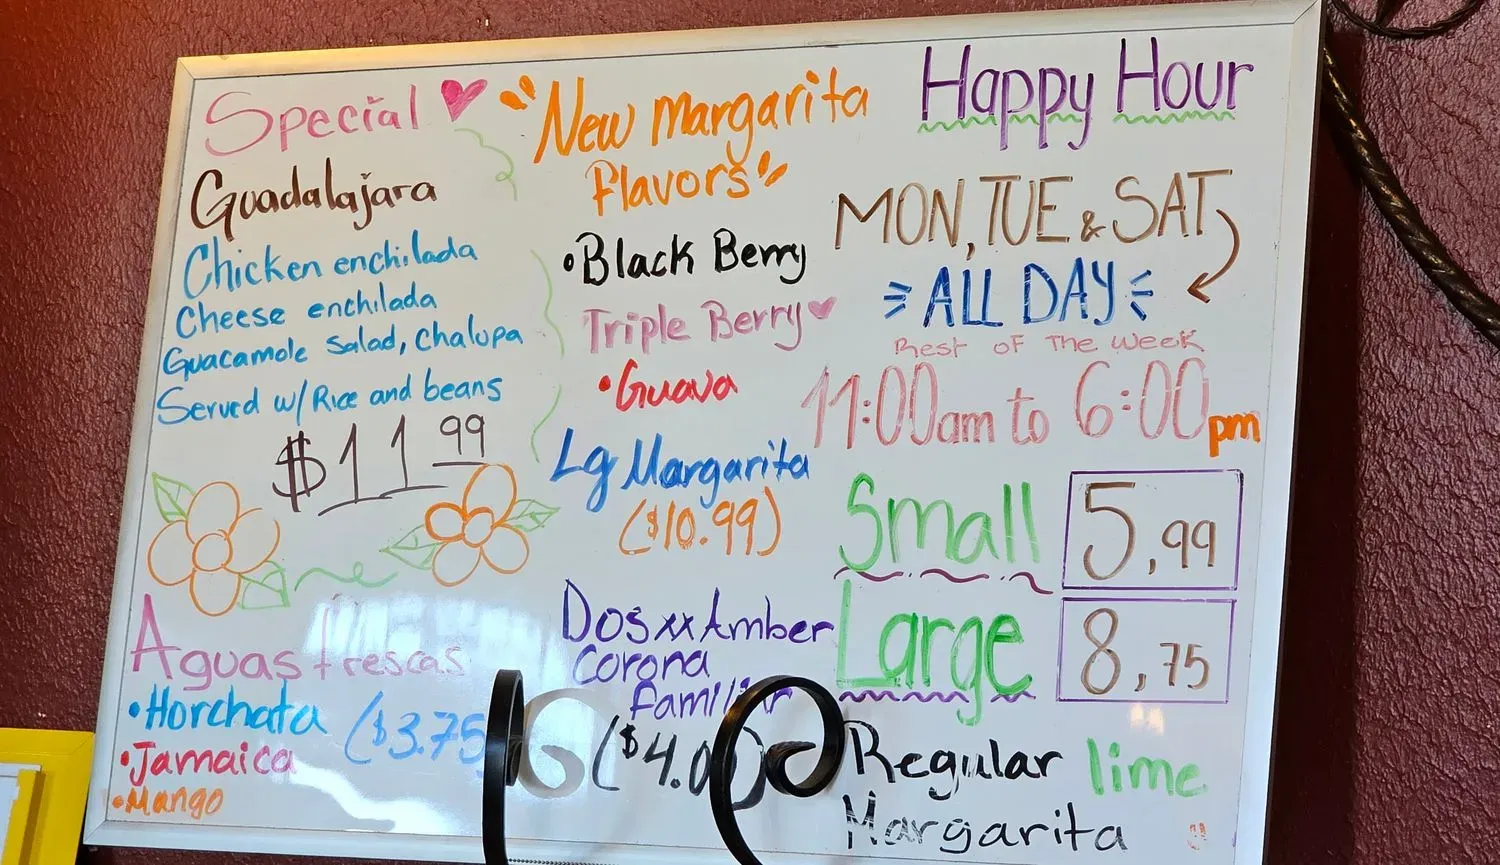 Special
Guadalajara
Chicken enchilada
Cheese enchilada
Guacamole Salad, Chalupa
Served w/ Rice and beans
$11.99
Aguas frescas
•Horchata ($3.75
•Jamaica
•Mango
"New Margarita
flavors"
•Black Berry
Triple Berry
•Guava
Lg Margarita
($10.99)
Dos xx Amber
Corona
familiar
($4.00)
Happy Hour
MON, TUE & SAT
ALL DAY
Rest of The week
11:00am to 6:00pm
Small 5.99
Large 8.75
Regular lime
Margarita